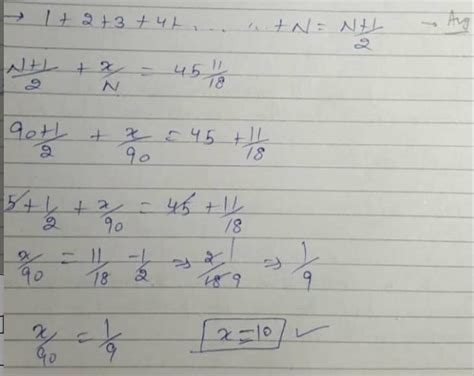 → 1+2+3+4+ . . . . . . +N = N+1/2 → Avg
N+1/2 + x/N = 45 11/18
90+1/2 + x/90 = 45 + 11/18
5+1/2 + x/90 = 45 + 11/18
x/90 = 11/18 - 1/2 ⇒ 2/18 1/9 ⇒ 1/9
x/90 = 1/9 x=10 ✓